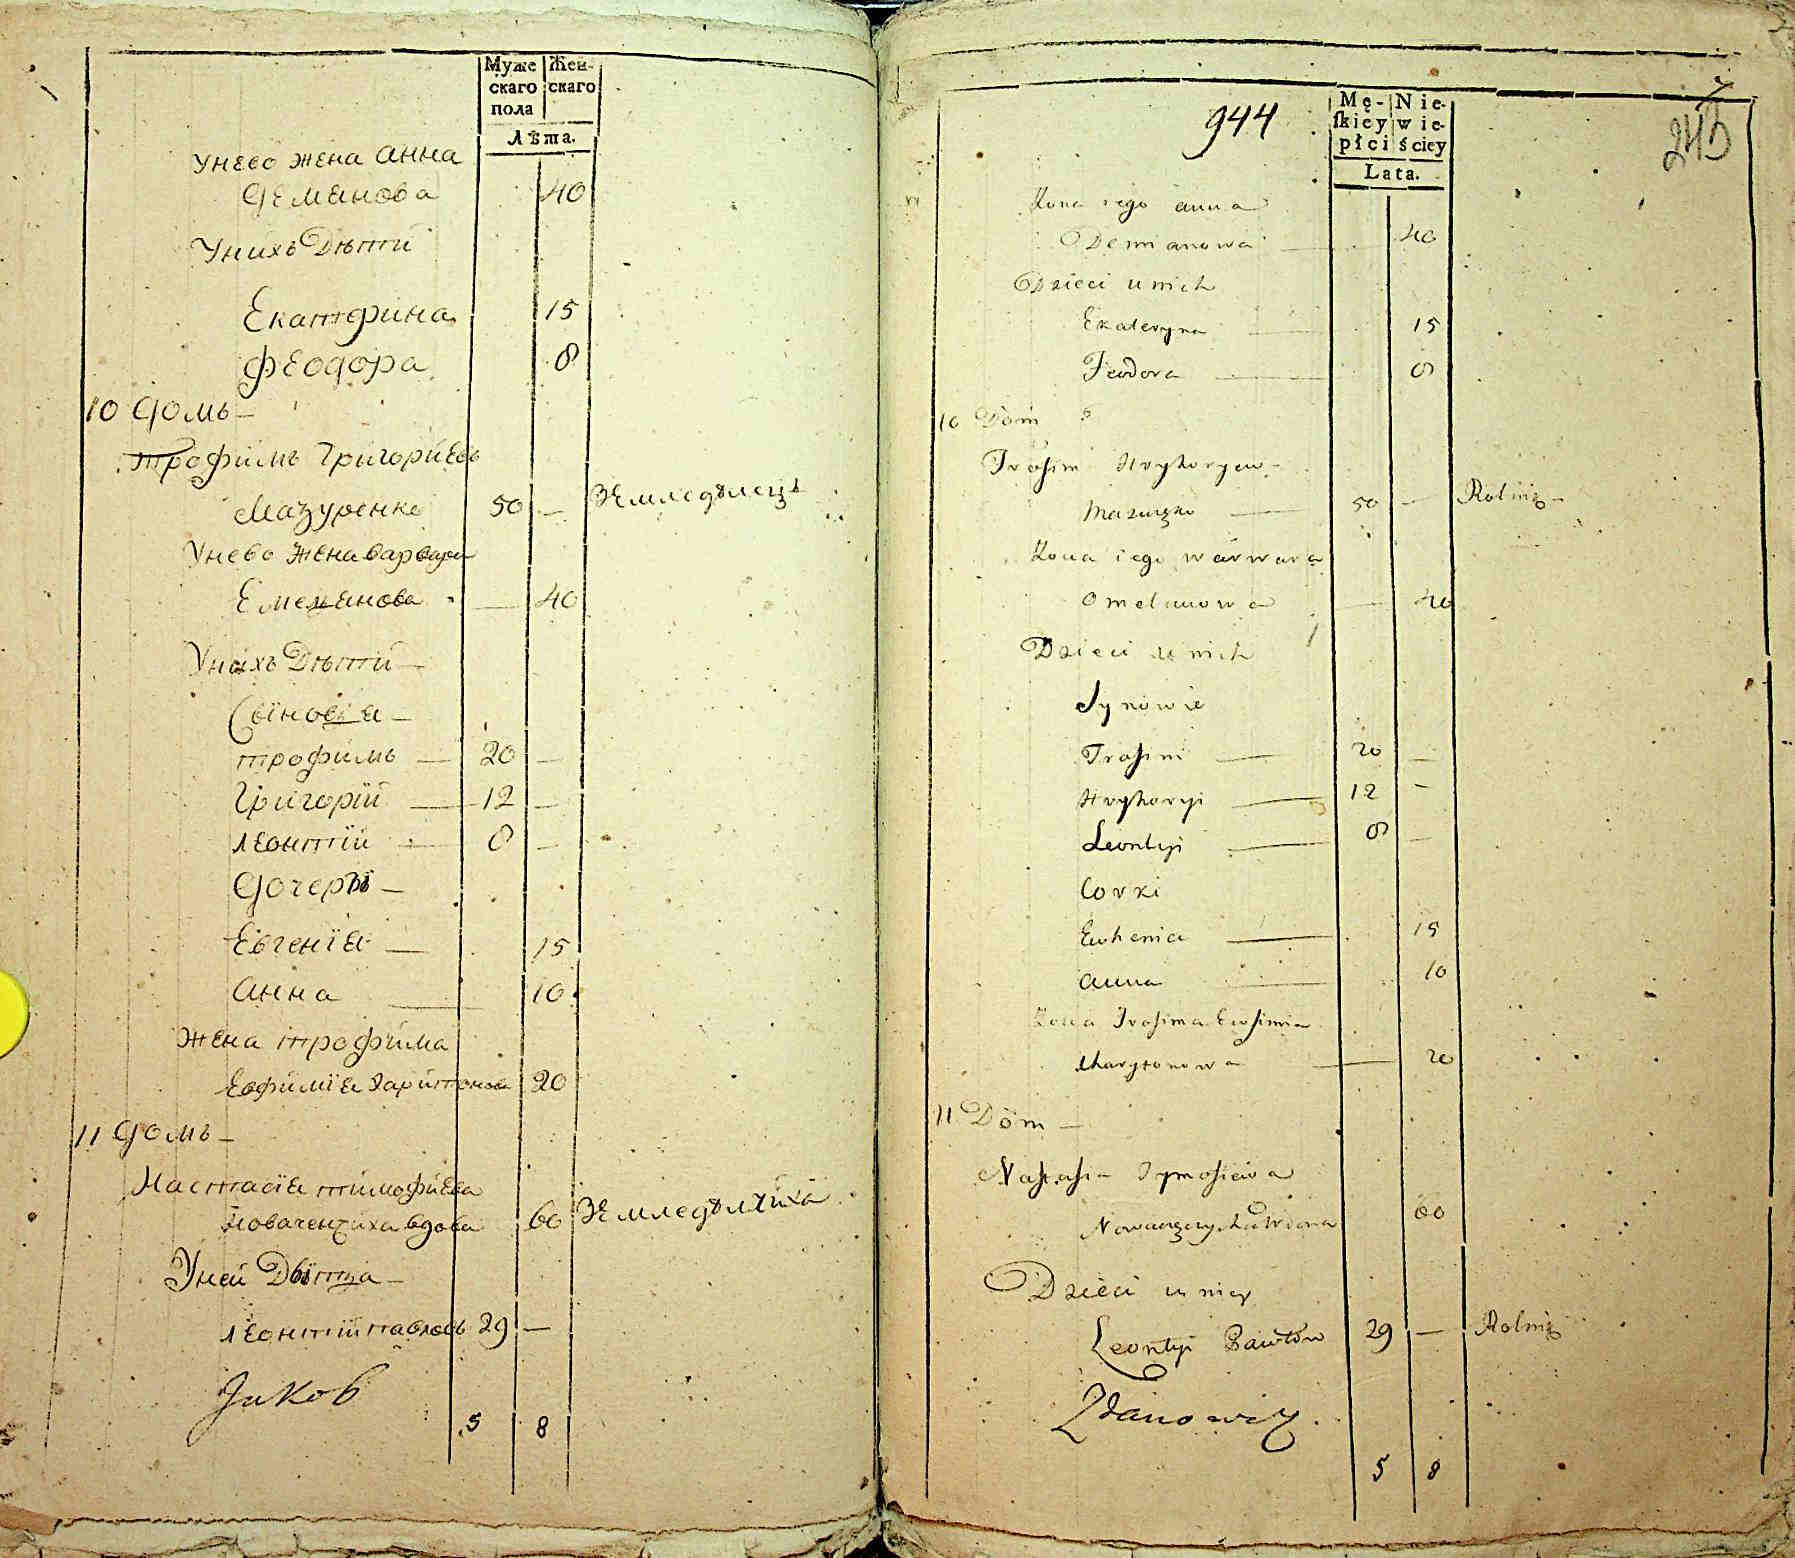 Муже Жен-
скаго скаго
пола
Лѣта.
Унево жена Анна
Деманова 40
Унихъ Дѣти
Екатерина 15
Феодора 8
10 Домъ —
Трофимъ Григориевъ
Мазуренко 50 — Земледѣлецъ
Унево жена Варвара
Емельянова — 40
Унихъ Дѣти —
Синовья —
трофимъ — 20 —
Григорій — 12 —
леонтій — 8 —
Дочеры —
Евгенія — 15
Анна — 10
Жена трофима
Евфимія Харитонова 20
11 Домъ —
Настасія тимофиева
вдова 60 Земледѣлчиха
Уней —
леонтій павловъ 29 —
Jakob
5 8
944
7
243
Mę- Nie-
ſkiey wie-
płci ściey
Lata.
Żona iego Anna
Demianowa — 40
Dzieci u nich
Ekateryna — 15
Feodora — 8
10 Dom
Trofim Hryhoryew
50 — Rolnią —
Żona iego Warwara
Omelanowa — 40
Dzieci u nich
Synowie
Trofim — 20 —
Hryhoryi — 12 —
Leontyi — 8 —
Corki
Ewhenia — 15
Anna — 10
Żona Trofima Ewfimia
Charytonowa — 20
11 Dom —
Nastasia Tymofiewa
Wdowa 60
Dzieci u niey
Leontyi Pawłow 29 — Rolnią
Zdanowicz
5 8